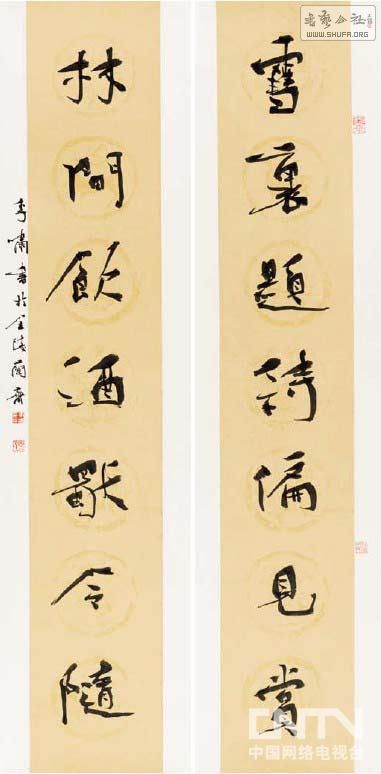 书艺公社
WWW.SHUFA.ORG
雪裏題詩偏見賞
林間飲酒獨令隨
李嘯書於金陵蘭齋
CNTV
中国网络电视台